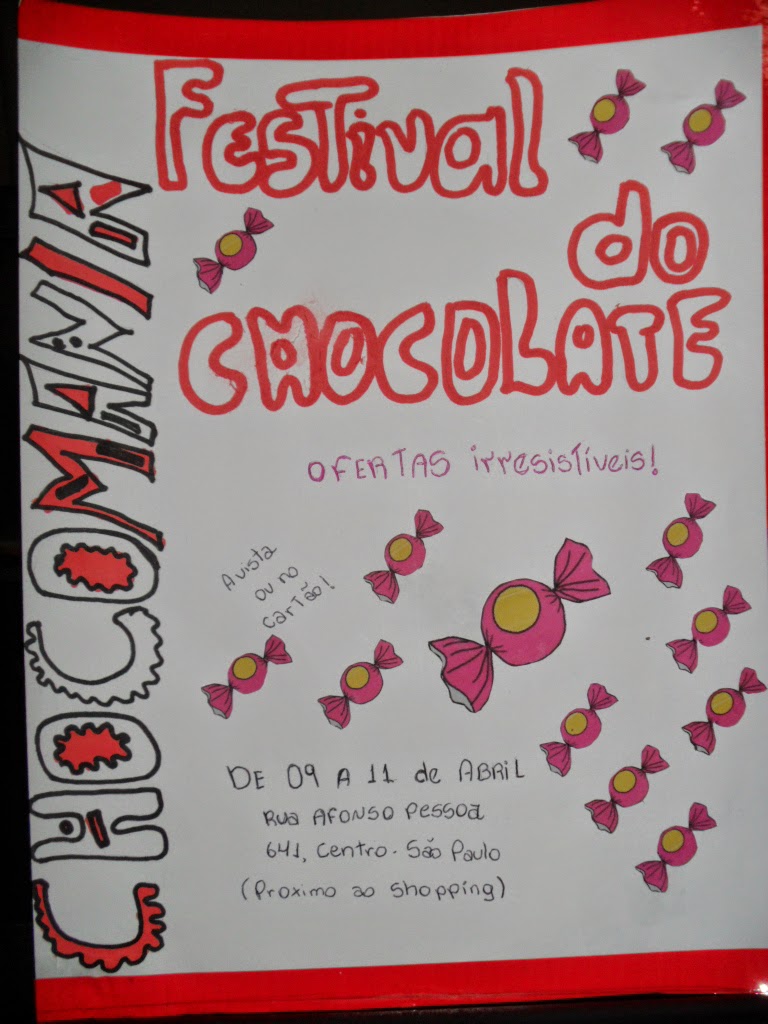 CHOCOMANIA
Festival
do
CHOCOLATE
OFERTAS irresistíveis!
A vista
ou no
cartão!
DE 09 A 11 de ABRIL
Rua AFONSO Pessoa
641, Centro - São Paulo
(Proximo ao shopping)